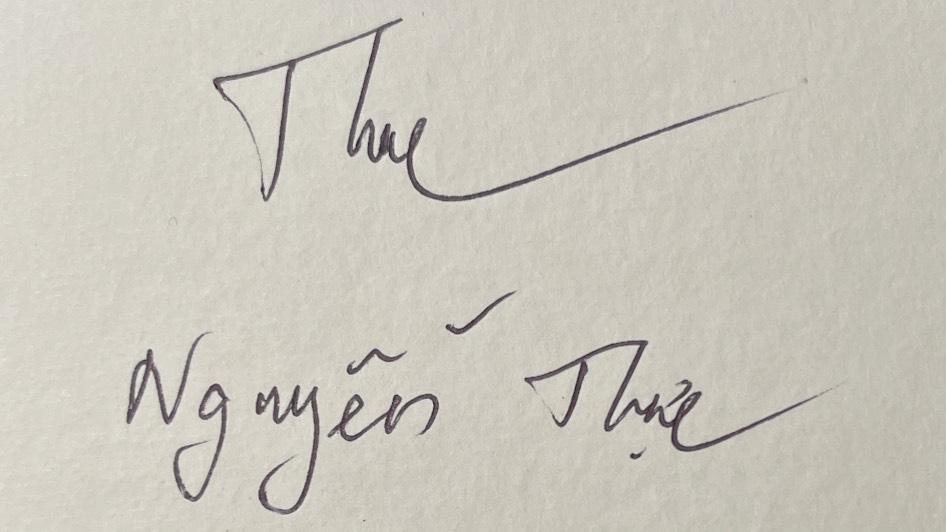 Thuc
Nguyễn Thực